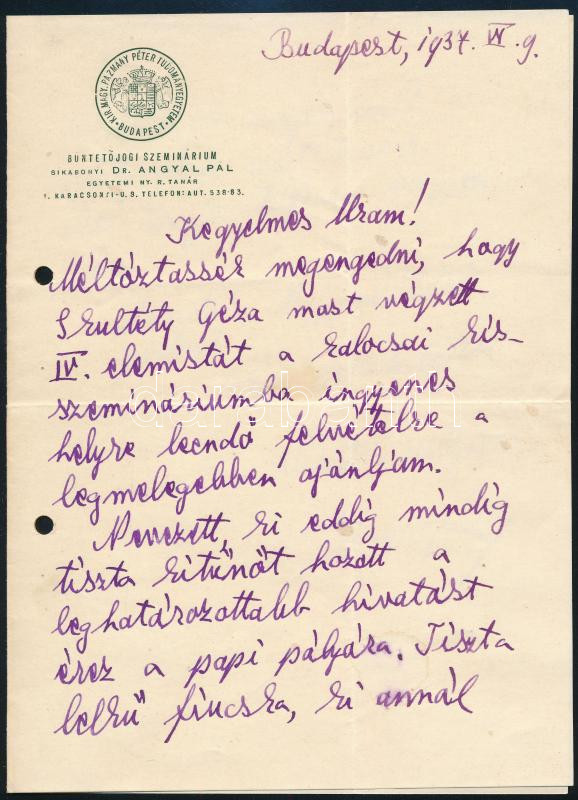 Budapest, 1937. IV. 9.
KIR. MAGY. PÁZMÁNY PÉTER TUDOMÁNYEGYETEM
• BUDAPEST •
BÜNTETŐJOGI SZEMINÁRIUM
SIKABONYI DR. ANGYAL PÁL
EGYETEMI NY. R. TANÁR
KARÁCSONYI-U. 9. TELEFON: AUT. 538-83.
Kegyelmes Uram!
Méltóztassék megengedni, hogy
Skultéty Géza mast végzett
IV. elemistát a kalocsai kis-
szemináriumba ingyenes
helyre leendő felvételre a
legmelegebben ajánljam.
Nevezett, ki eddig mindig
tiszta kitünőt hozott a
leghatározottabb hivatást
érez a papi pályára. Tiszta
lelkű fiucska, ki annál
darabanth